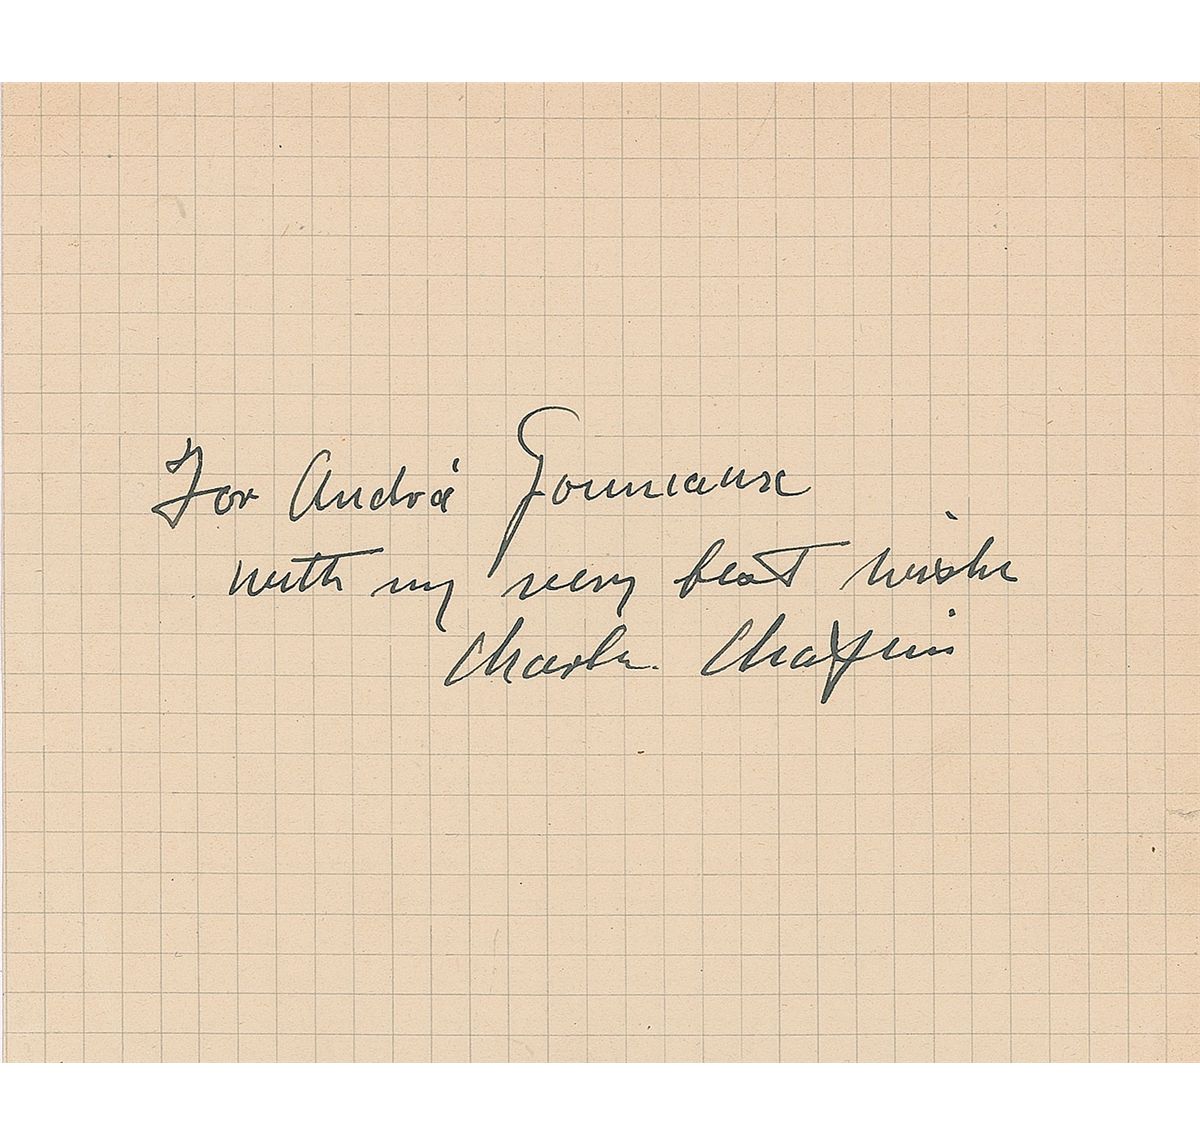 For André Gourneaux
with my very best wishes
Charles Chaplin